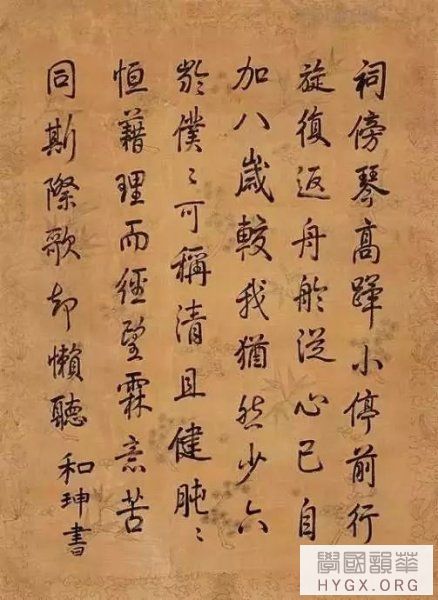 祠傍琴高蹕小停前行
旋復返舟舲從心已自
加八歲較我猶然少六
齡僕〻可稱清且健肫〻
恒藉理而經望霖意苦
同斯際歌却懶聽 和珅書
學國韻華
HYGX.COM